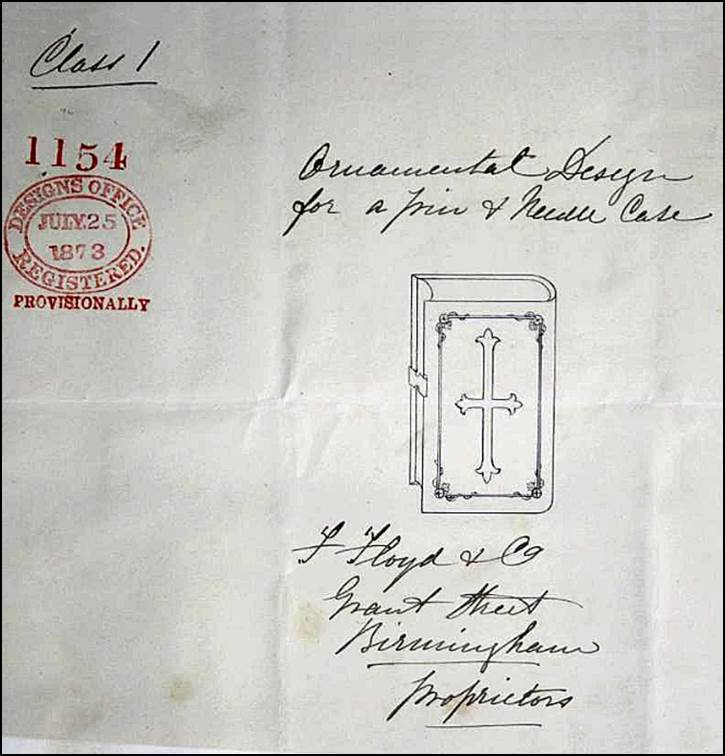 Class 1
1154
DESIGNS OFFICE
JULY.25
1873
REGISTERED.
PROVISIONALLY
Ornamental Design
for a Pin & Needle Case
F Floyd & Co
Grant Street
Birmingham
Proprietors